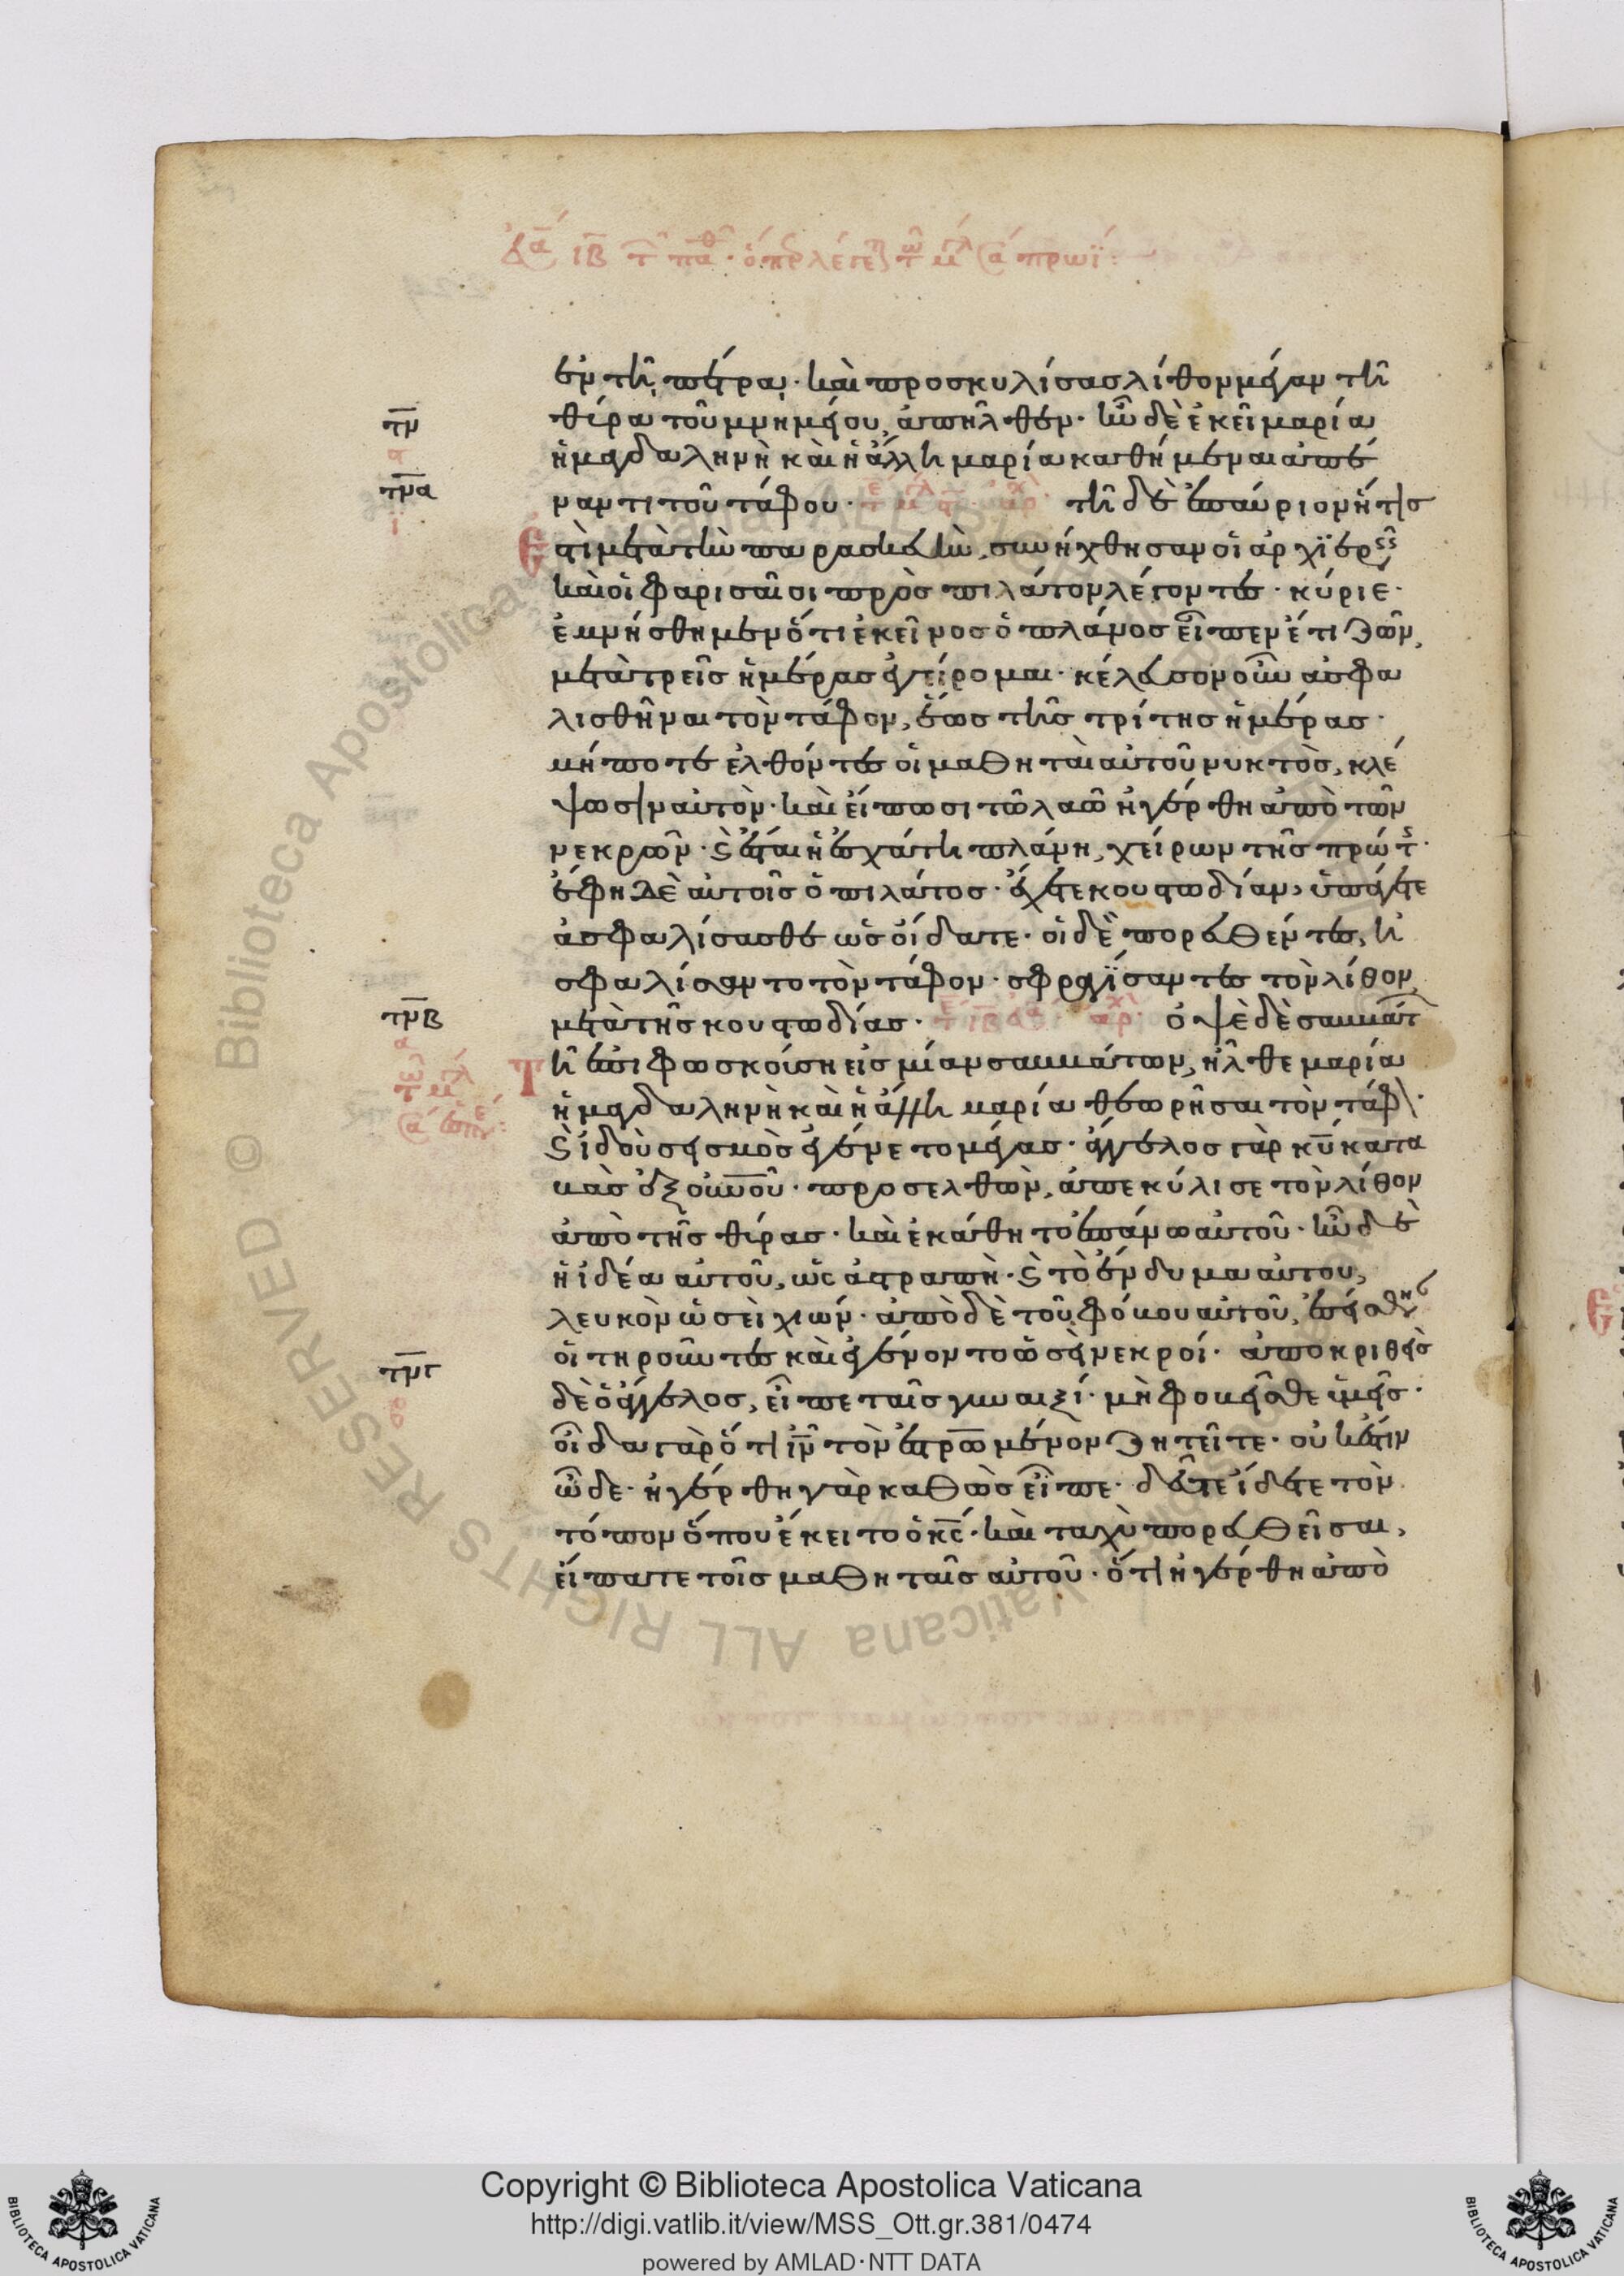 ἐν τῆ πέτρα· καὶ προσκυλίσας λίθον μέγαν τῆ
θύρα τοῦ μνημείου, ἀπῆλθεν· ἦν δὲ ἐκεῖ μαρία
τμ
ἡ μαγδαληνὴ καὶ ἡ ἄλλη μαρία καθήμεναι ἀπέ
τμα
ναντι τοῦ τάφου· τῆ δὲ ἐπαύριον ἥτις
ἐστὶ μετὰ τὴν παρασκευὴν, συνήχθησαν οἱ ἀρχϊερεῖς
καὶ οἱ φαρισαῖοι πρὸς πιλάτον λέγοντες· κύριε·
ἐμνήσθημεν ὅτι ἐκεῖνος ὁ πλάνος εἶπεν ἔτι ζῶν,
μετὰ τρεῖς ἡμέρας ἐγείρομαι· κέλευσον οὖν ἀσφα
λισθῆναι τὸν τάφον, ἕως τῆς τρίτης ἡμέρας·
μήποτε ἐλθόντες οἱ μαθηταὶ αὐτοῦ νυκτὸς, κλέ
ψωσιν αὐτὸν· καὶ εἴπωσι τῶ λαῶ ἠγέρθη ἀπὸ τῶν
νεκρῶν· ϛ ἔσται ἡ ἐσχάτη πλάνη, χείρων τῆς πρώτ·
ἔφη δὲ αὐτοῖς ὁ πιλάτος· ἔχετε κουστωδίαν, ὑπάγετε
ἀσφαλίσασθε ὡς οἴδατε· οἱ δὲ πορευθέντες, ἠ
σφαλίσαντο τὸν τάφον· σφραγΐσαντες τὸν λίθον,
τμβ
μετὰ τῆς κουστωδίας· ὀψὲ δὲ σαββάτ
τῆ ἐπιφωσκούση εἰς μίαν σαββάτων, ἦλθε μαρία
ἡ μαγδαληνὴ καὶ ἡ ἄλλη μαρία θεωρῆσαι τὸν τάφ·
ϛ ἰδοὺ σεισμὸς ἐγένετο μέγας· ἄγγελος γὰρ κυ κατα
βὰς ἐξ οὐνοῦ· προσελθὼν, ἀπεκύλισε τὸν λίθον
ἀπὸ τῆς θύρας· καὶ ἐκάθητο ἐπάνω αὐτοῦ· ἦν δὲ
ἡ ἰδέα αὐτοῦ, ὡς ἀστραπὴ· ϛ τὸ ἔνδυμα αὐτου,
λευκὸν ὡσεὶ χιών· ἀπὸ δὲ τοῦ φόβου αὐτοῦ, ἐσείσθησ
οἱ τηροῦντες καὶ ἐγένοντο ὡσεὶ νεκροί· ἀποκριθεὶς
τμγ
δὲ ὁ ἄγγελος, εἶπε ταῖς γυναιξί· μὴ φοβεῖσθε ὑμεῖς·
οἶδα γὰρ ὅτι ιν τὸν ἐστρωμένον ζητεῖτε· οὐκ ἔστιν
ὧδε· ἠγέρθη γὰρ καθὼς εἶπε· δεῦτε ἴδετε τὸν
τόπον ὅπου ἔκειτο ὁ κς· καὶ ταχὺ πορευθεῖσαι,
εἴπατε τοῖς μαθηταῖς αὐτοῦ· ὅτι ἠγέρθη ἀπὸ
Copyright © Biblioteca Apostolica Vaticana
http://digi.vatlib.it/view/MSS_Ott.gr.381/0474
powered by AMLAD·NTT DATA